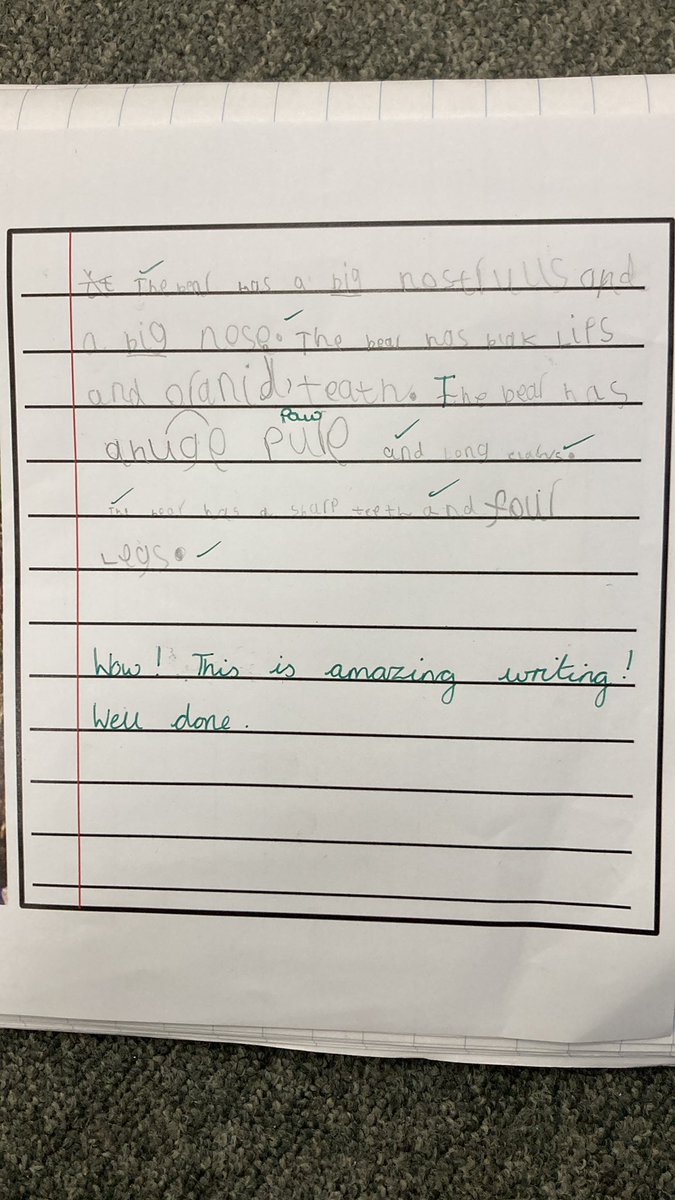 The bear has a big nostruus and
a big nose. The bear has bink Lips
and oranid, teath. The bear has
paw
anuge pule and long claws.
The bear has a sharp teeth and four
Legs.
Wow! This is amazing writing!
Well done.